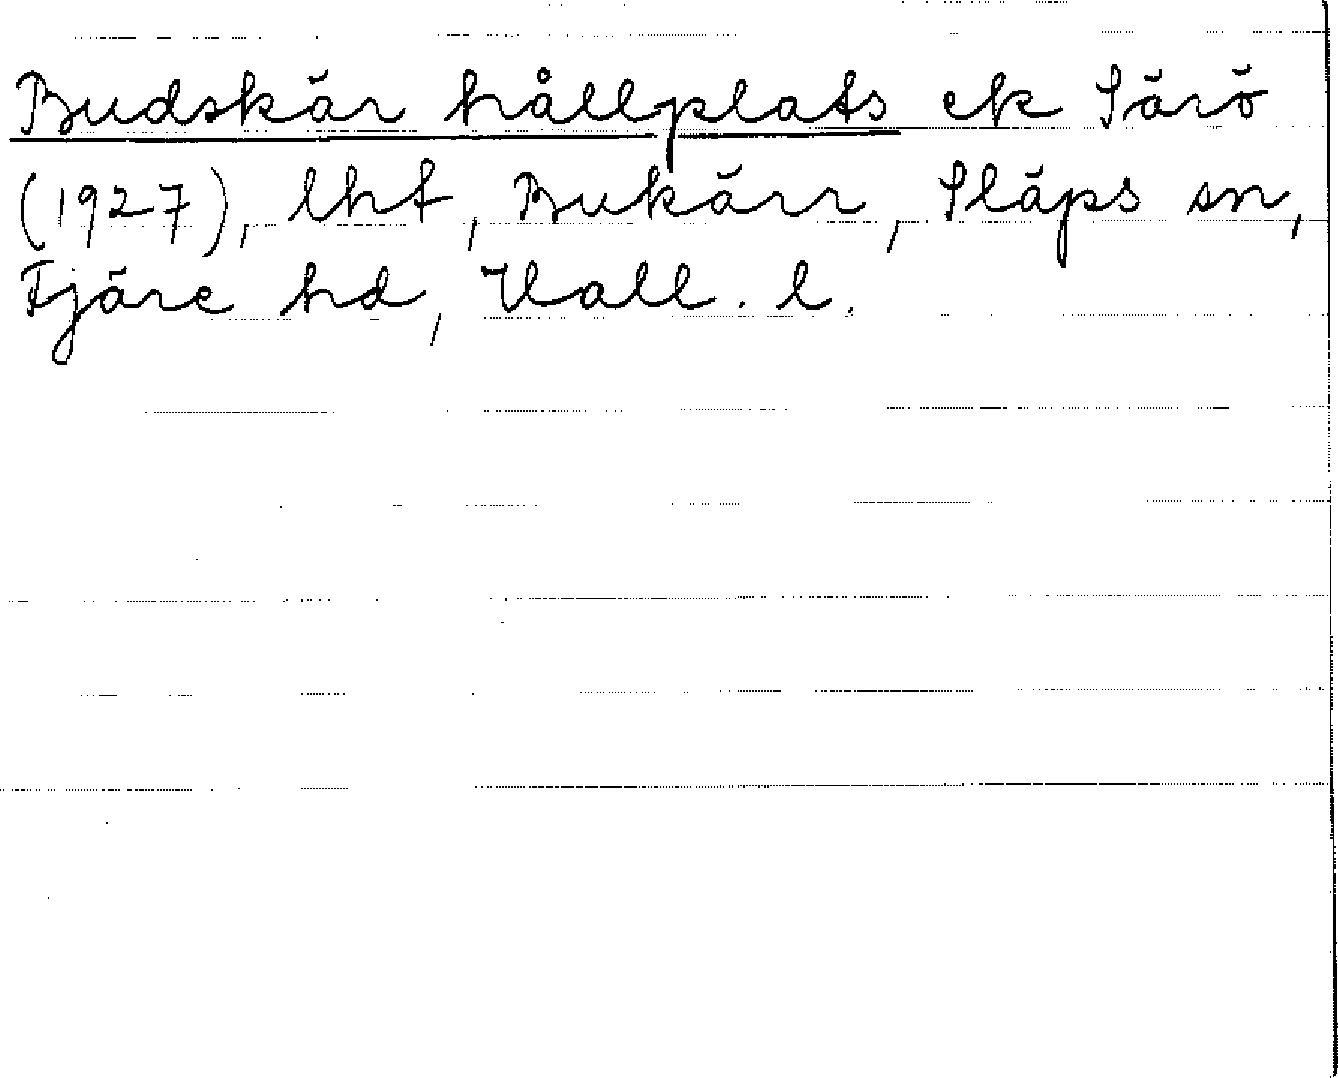 Budskär hållplats ek Särö
(1927), lht, Bukärr, Släps sn,
Fjäre hd, Hall. l.